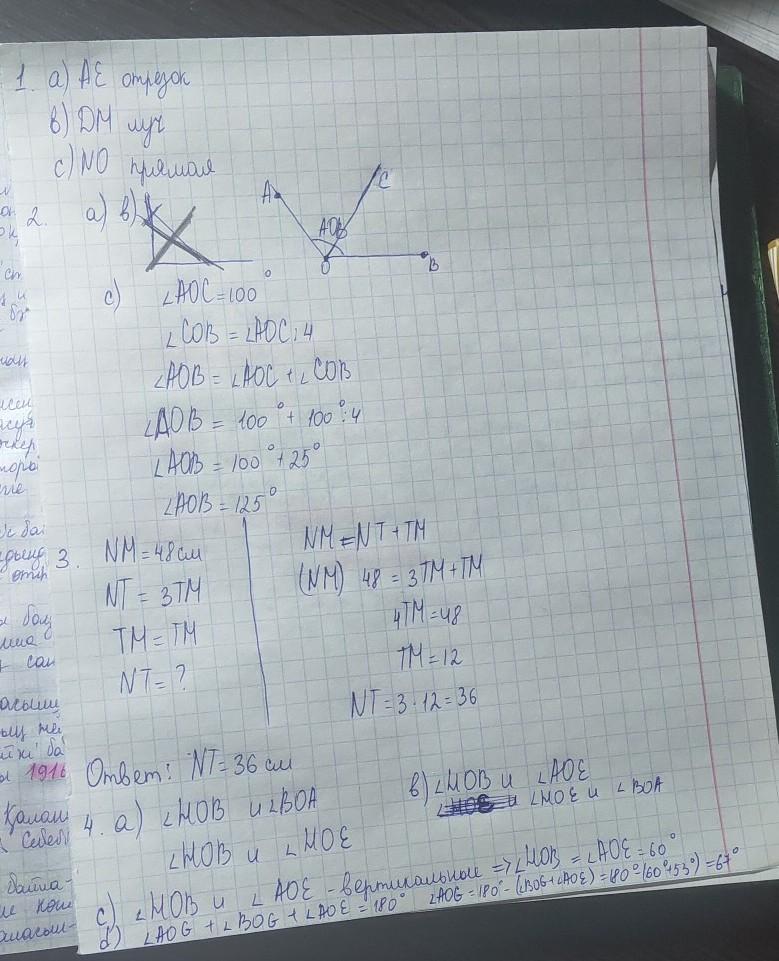 1. a) AE отрезок
в) DM луч
c) NO прямая
2. a) в)
A C
AOB
O B
c) ∠AOC = 100°
∠COB = ∠AOC : 4
∠AOB = ∠AOC + ∠COB
∠AOB = 100° + 100° : 4
∠AOB = 100° + 25°
∠AOB = 125°
3. NM = 48 см
NT = 3TM
TM = TM
NT = ?
NM = NT + TM
(NM) 48 = 3TM + TM
4TM = 48
TM = 12
NT = 3 · 12 = 36
Ответ: NT = 36 см
4. a) ∠MOB и ∠BOA
∠MOB и ∠MOE
в) ∠MOB и ∠AOE
∠MOE и ∠BOA
c) ∠MOB и ∠AOE - вертикальные => ∠MOB = ∠AOE = 60°
d) ∠AOG + ∠BOG + ∠AOE = 180° ∠AOG = 180° - (∠BOG + ∠AOE) = 180° - (60° + 53°) = 67°
1916